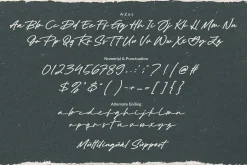 Aa Bb Cc Dd Ee Ff Gg Hh Ii Jj Kk Ll Mm Nn
Oo Pp Qq Rr Ss Tt Uu Vv Ww Xx Yy Zz
Numeral & Punctuation
0123456789
Alternate Ending
a b c d e f g h i j k l m n
o p q r s t u v w x y z
Multilingual Support